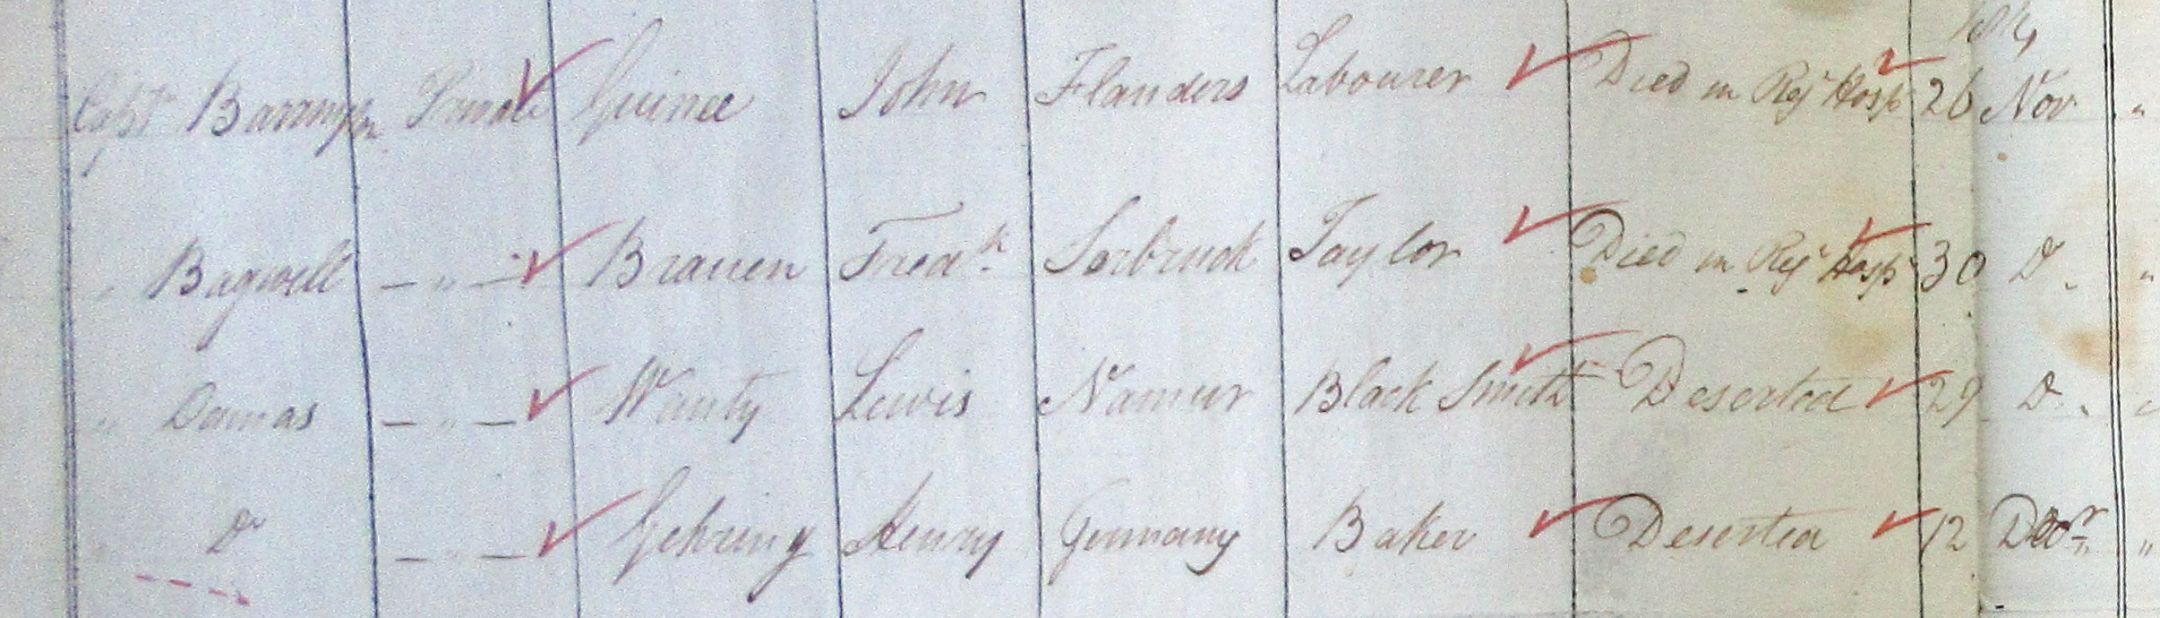 1814
Capt Barrington Private Guinee John Flanders Labourer Died in Regt Hospl 26 Nov "
" Bagwell — " — Brauen Fredk Sarbruck Taylor Died in Regt Hospl 30 Do "
" Damas — " — Wauty Lewis Namur Black Smith Deserted 29 Do "
" Do — " — Gehring Henry Germany Baker Deserted 12 Decr "